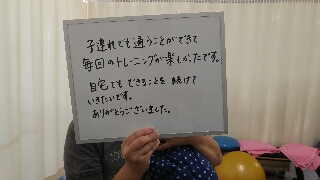 子連れでも通うことができて
毎回のトレーニングが楽しかったです。
自宅でもできることを続けて
いきたいです。
ありがとうございました。